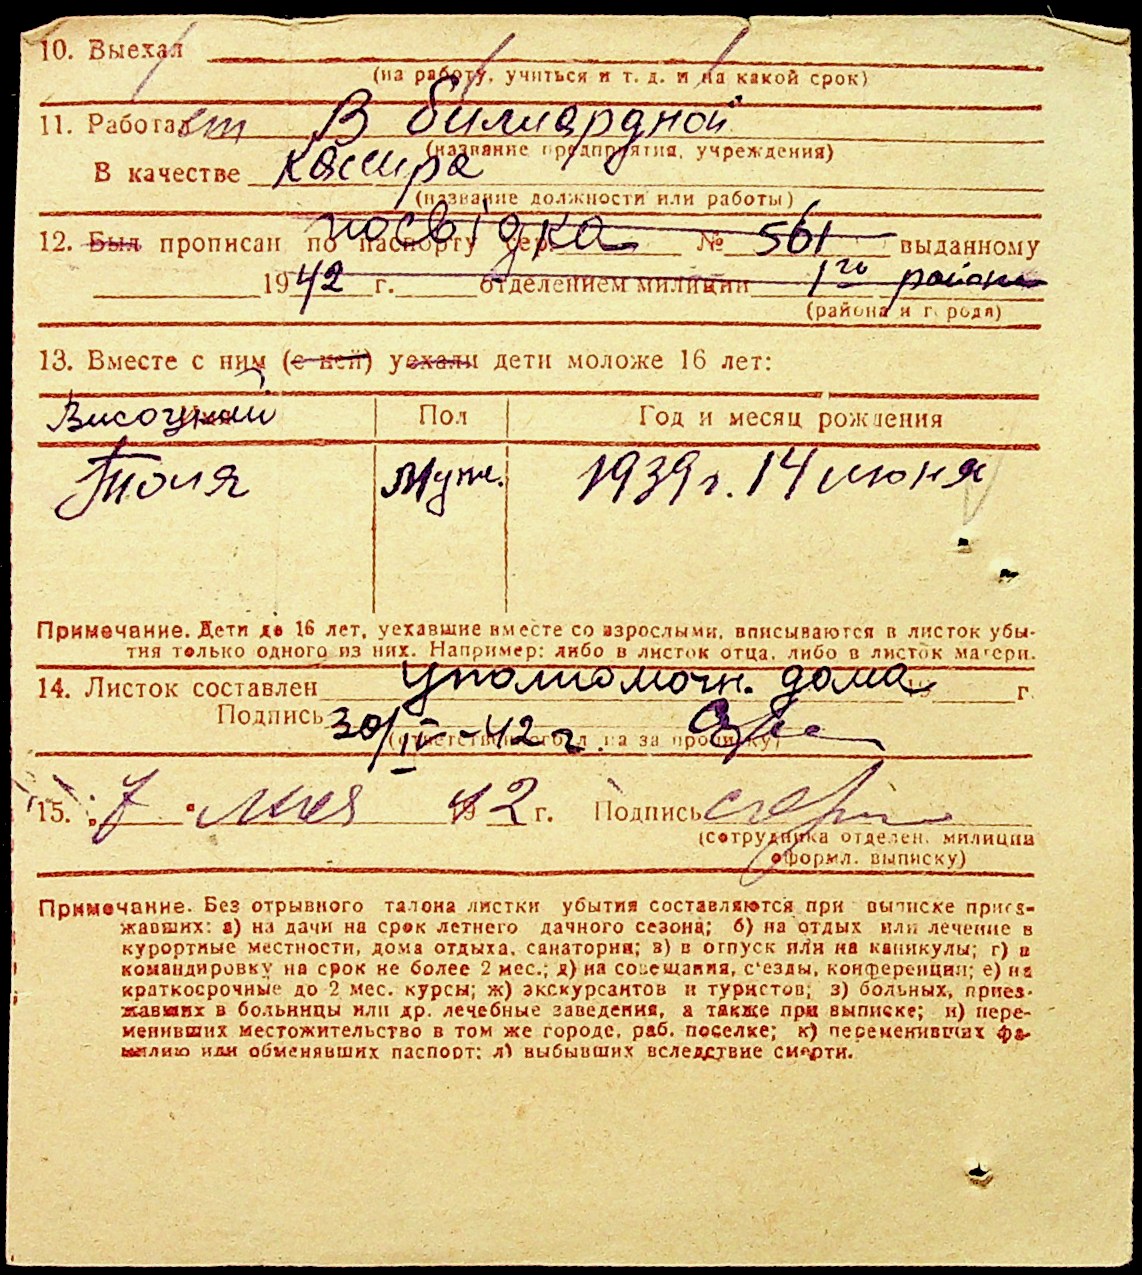 10. Выехал
(на работу, учиться и т. д. и на какой срок)
11. Работает В биллиардной
(название предприятия, учреждения)
В качестве кассира
(название должности или работы)
12. Был прописан по паспорту сер. посвідка № 561 выданному
1942 г. отделением милиции 1го района
(района и города)
13. Вместе с ним (с ней) уехали дети моложе 16 лет:
Высоцкий Пол Год и месяц рождения
Толя Муж. 1939 г. 14 июня
Примечание. Дети до 16 лет, уехавшие вместе со взрослыми, вписываются в листок убы-
тия только одного из них. Например: либо в листок отца, либо в листок матери.
14. Листок составлен уполномочн. дома 19 г.
Подпись 30/IV-42 г.
(ответственного л-ца за прописку)
15. „7" мая 42 г. Подпись
(сотрудника отделен. милиции
оформл. выписку)
Примечание. Без отрывного талона листки убытия составляются при выписке приез-
жавших: а) на дачи на срок летнего дачного сезона; б) на отдых или лечение в
курортные местности, дома отдыха, санатории; в) в отпуск или на каникулы; г) в
командировку на срок не более 2 мес.; д) на совещания, с'езды, конференции; е) на
краткосрочные до 2 мес. курсы; ж) экскурсантов и туристов; з) больных, приез-
жавших в больницы или др. лечебные заведения, а также при выписке; и) пере-
менивших местожительство в том же городе, раб. поселке; к) переменивших фа-
милию или обменявших паспорт; л) выбывших вследствие смерти.